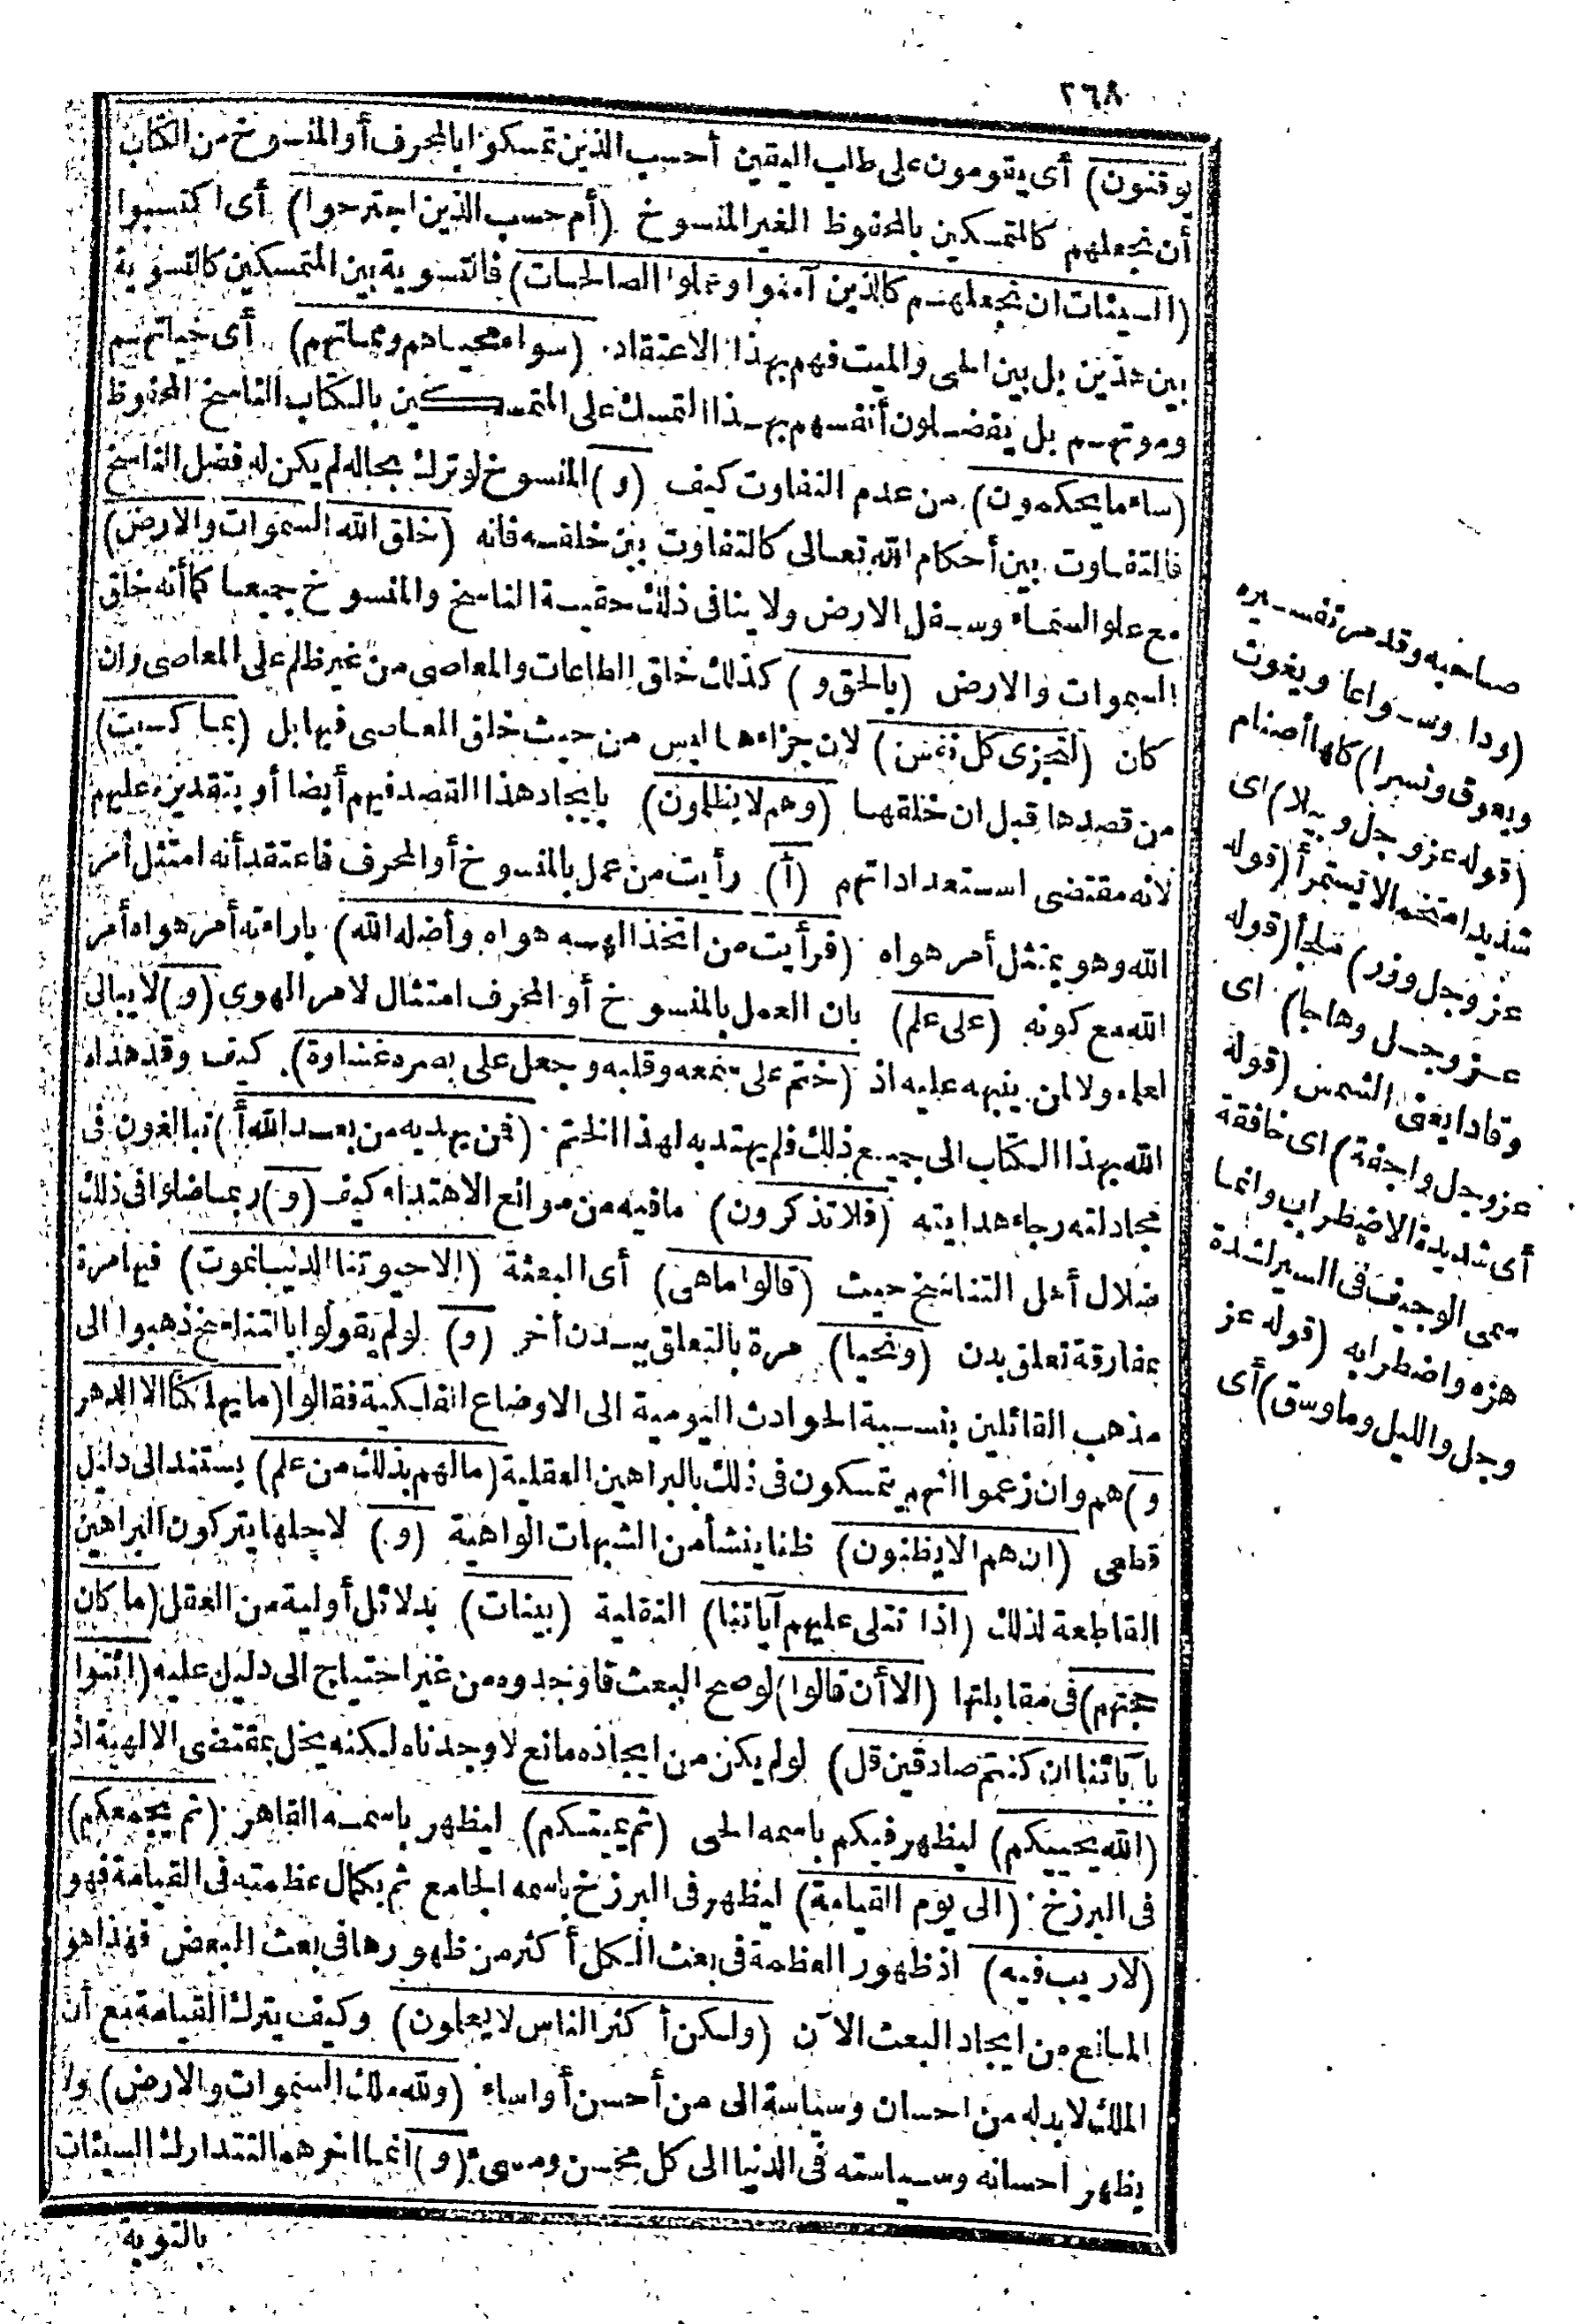 ٢٦٨
يوقنون) أى يقومون على طلب اليقين أحسب الذين تمسكوا بالمحرف أو المنسوخ من الكتاب
أن نجعلهم كالمتمسكين بالمحفوظ الغير المنسوخ (أم حسب الذين اجترحوا) أى اكتسبوا
(السيئات ان نجعلهم كالذين آمنوا وعملوا الصالحات) فالتسوية بين المتمسكين كالتسوية
بين هذين بل بين الحى والميت فهم بهذا الاعتقاد (سواء محياهم ومماتهم) أى حياتهم
وموتهم بل يفضلون أنفسهم بهذا التمسك على المتمسكين بالكتاب الناسخ المحفوظ
(ساء ما يحكمون) من عدم التفاوت كيف (و) المنسوخ لو ترك بحاله لم يكن له فضل الناسخ
فالتفاوت بين أحكام الله تعالى كالتفاوت بين خلقه فانه (خلق الله السموات والارض)
مع علو السماء وسفل الارض ولا ينافى ذلك حقية الناسخ والمنسوخ جميعا كما أنه خلق
السموات والارض (بالحق و) كذلك خلق الطاعات والمعاصى من غير ظلم على المعاصى وان
كان (لتجزى كل نفس) لان جزاءها ليس من حيث خلق المعاصى فيها بل (بما كسبت)
من قصدها قبل ان خلقها (وهم لا يظلمون) بايجاد هذا القصد فيهم أيضا أو بتقديره عليهم
لانه مقتضى استعداداتهم (أ) رأيت من عمل بالمنسوخ أو المحرف فاعتقد أنه امتثل أمر
الله وهو يمتثل أمر هواه (فرأيت من اتخذ الهه هواه وأضله الله) باراءته أمر هواه أمر
الله مع كونه (على علم) بان العمل بالمنسوخ أو المحرف امتثال لامر الهوى (و) لا يبالى
لعلمه ولا لمن ينبهه عليه اذ (ختم على سمعه وقلبه وجعل على بصره غشاوة) كيف وقد هداه
الله بهذا الكتاب الى جميع ذلك فلم يهتد به لهذا الختم (فمن يهديه من بعد الله أ) تبالغون فى
مجادلته رجاء هدايته (فلا تذكرون) ما فيه من موانع الاهتداء كيف (و) ربما ضلوا فى ذلك
ضلال أهل التناسخ حيث (قالوا ما هى) أى البعثة (الا حيوتنا الدنيا نموت) فيها مرة
بمفارقة تعلق بدن (ونحيا) مرة بالتعلق ببدن أخر (و) لو لم يقولوا بالتناسخ ذهبوا الى
مذهب القائلين بنسبة الحوادث اليومية الى الاوضاع الفلكية فقالوا (ما يهلكنا الا الدهر
و) هم وان زعموا انهم يتمسكون فى ذلك بالبراهين العقلية (ما لهم بذلك من علم) يستند الى دليل
قطعى (ان هم الا يظنون) ظنا ينشأ من الشبهات الواهية (و) لاجلها يتركون البراهين
القاطعة لذلك (اذا تتلى عليهم آياتنا) النقلية (بينات) بدلائل أولية من العقل (ما كان
حجتهم) فى مقابلتها (الا أن قالوا) لو صح البعث فاوجدوه من غير احتياج الى دليل عليه (ائتوا
بآبائنا ان كنتم صادقين قل) لو لم يكن من ايجاده مانع لاوجدناه لكنه يخل بمقتضى الالهية اذ
(الله يحييكم) ليظهر فيكم باسمه الحى (ثم يميتكم) ليظهر باسمه القاهر (ثم يجمعكم)
فى البرزخ (الى يوم القيامة) ليظهر فى البرزخ باسمه الجامع ثم بكمال عظمته فى القيامة فهو
(لا ريب فيه) اذ ظهور العظمة فى بعث الكل أكثر من ظهورها فى بعث البعض فهذا هو
المانع من ايجاد البعث الآن (ولكن أكثر الناس لا يعلمون) وكيف يترك القيامة مع أن
الملك لابد له من احسان وسياسة الى من أحسن أو اساء (ولله ملك السموات والارض) ولا
يظهر احسانه وسياسته فى الدنيا الى كل محسن ومسىء (و) انما اخرهما لتتدارك السيئات
بالتوبة
صاحبه وقد مر تفسيره
(ودا وسواعا ويغوث
ويعوق ونسرا) كلها أصنام
(قوله عز وجل وبيلا) اى
شديدا متخما لا يستمرأ (قوله
عز وجل وزر) ملجأ (قوله
عز وجل وهاجا) اى
وقادا يعنى الشمس (قوله
عز وجل واجفة) اى خافقة
أى شديدة الاضطراب وانما
سمى الوجيف فى السير لشدة
هزه واضطرابه (قوله عز
وجل والليل وما وسق) أى